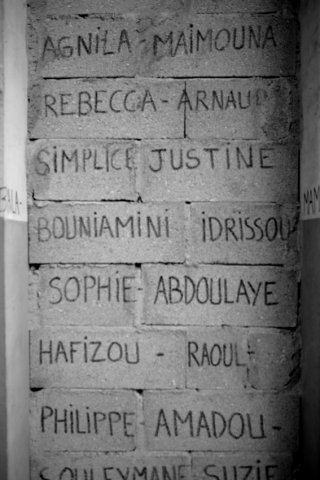 AGNILA - MAIMOUNA
REBECCA - ARNAUD
SIMPLICE JUSTINE
BOUNIAMINI IDRISSOU
SOPHIE - ABDOULAYE
HAFIZOU - RAOUL -
PHILIPPE - AMADOU -
SOULEYMANE SUZIE